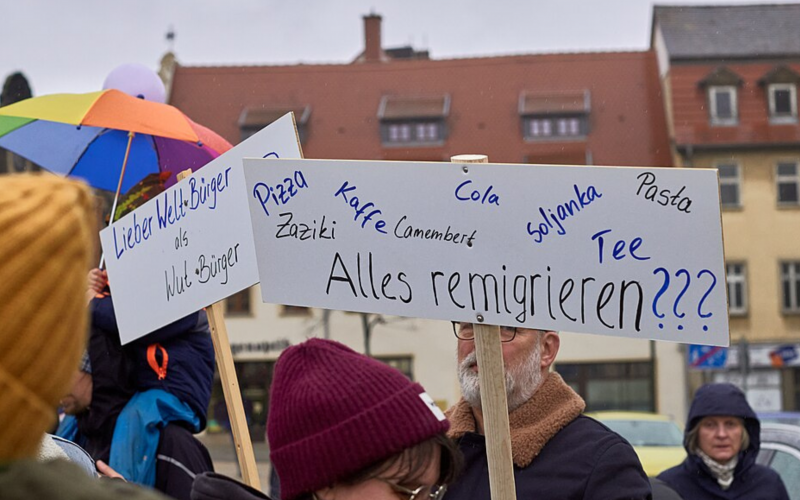 Lieber Welt-Bürger
als
Wut-Bürger
Pizza Kaffe Cola Soljanka Pasta
Zaziki Camembert Tee
Alles remigrieren???